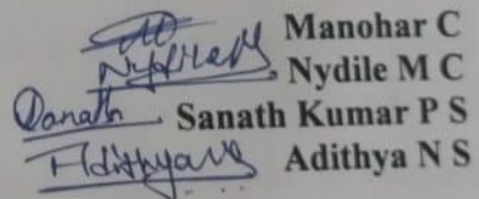 Manohar C
Nydile M Nydile M C
Sanath Sanath Kumar P S
Adithya N S Adithya N S